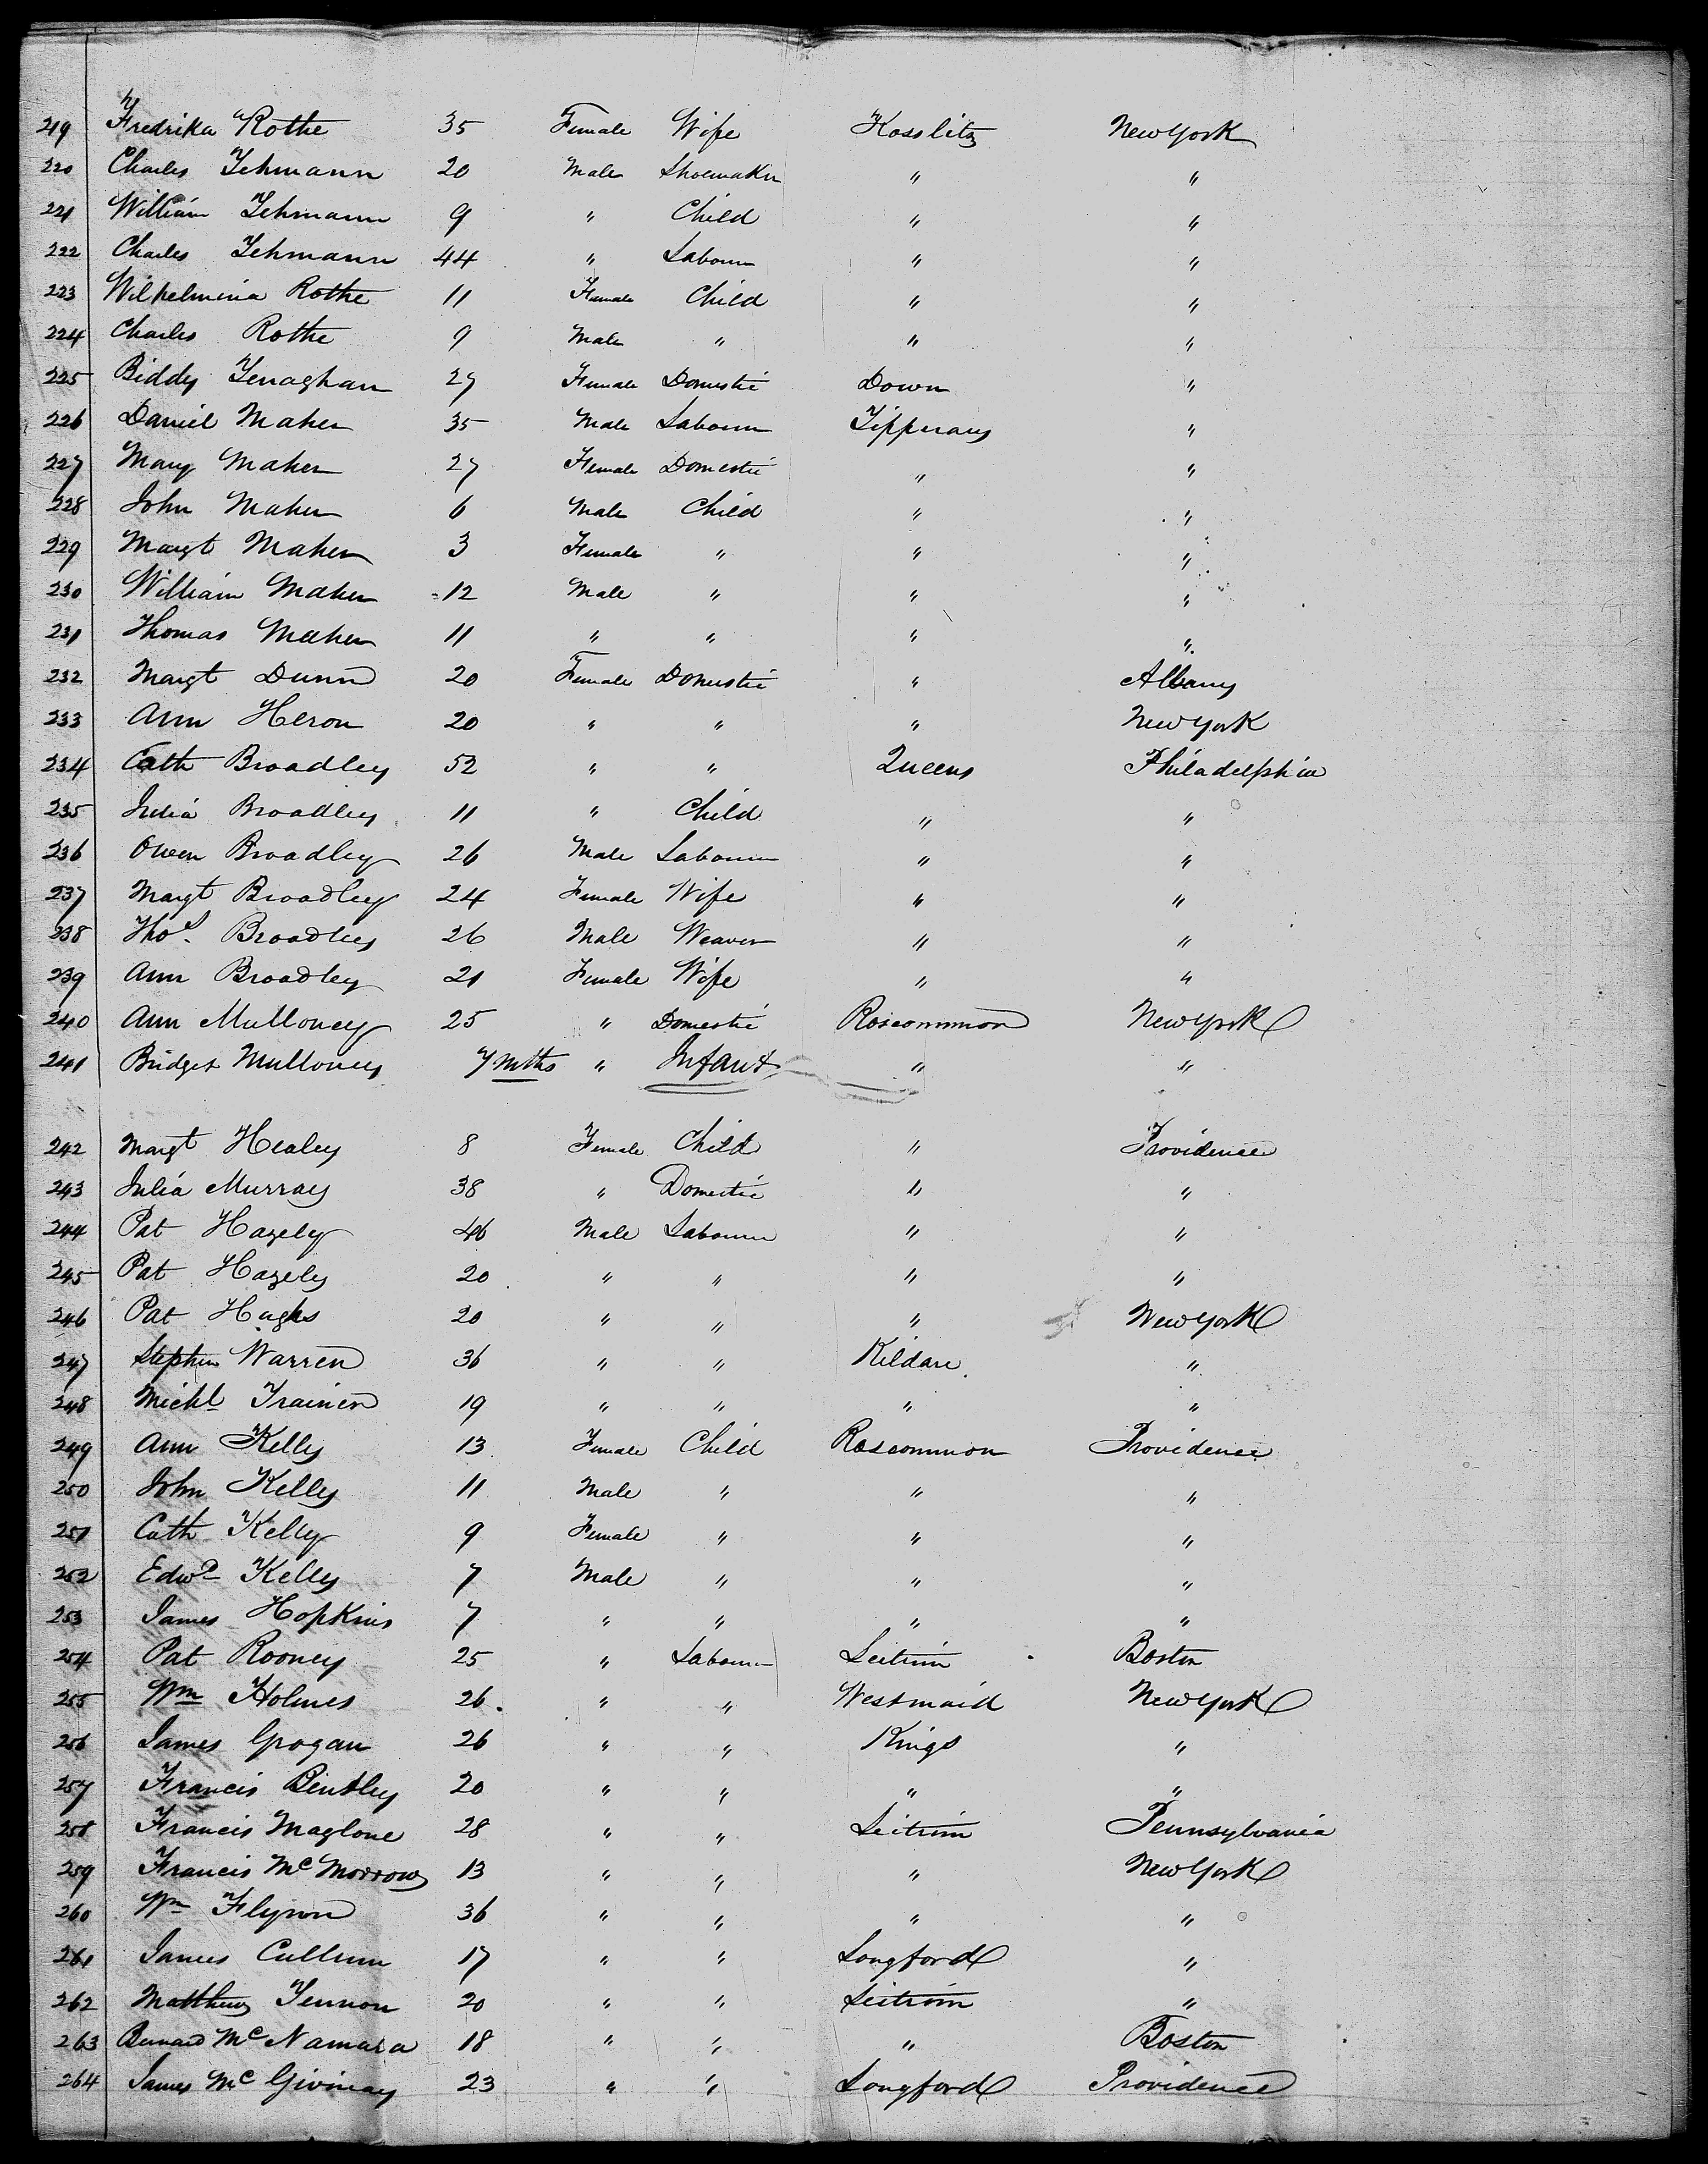 219 Fredrika Rothe 35 Female Wife Kosslitz New York
220 Charles Tehmann 20 Male Shoemaker " "
221 William Tehmann 9 " Child " "
222 Charles Tehmann 44 " Labourer " "
223 Wilhelmina Rothe 11 Female Child " "
224 Charles Rothe 9 Male " " "
225 Biddy Tenaghan 27 Female Domestic Down "
226 Daniel Maher 35 Male Labourer Tipperary "
227 Mary Maher 27 Female Domestic " "
228 John Maher 6 Male Child " "
229 Margt Maher 3 Female " " "
230 William Maher 12 Male " " "
231 Thomas Maher 11 " " " "
232 Margt Dunn 20 Female Domestic " Albany
233 Ann Heron 20 " " " New York
234 Cath Broadley 52 " " Queens Philadelphia
235 Julia Broadley 11 " Child " "
236 Owen Broadley 26 Male Labourer " "
237 Margt Broadley 24 Female Wife " "
238 Thos. Broadley 26 Male Weaver " "
239 Ann Broadley 21 Female Wife " "
240 Ann Mulloney 25 " Domestic Roscommon New York
241 Bridget Mulloney 7 mths " Infant " "
242 Margt Healey 8 Female Child " Providence
243 Julia Murray 38 " Domestic " "
244 Pat Hazely 46 Male Labourer " "
245 Pat Hazely 20 " " " "
246 Pat Hughs 20 " " " New York
247 Stephen Warren 36 " " Kildare "
248 Michl Trainer 19 " " " "
249 Ann Kelly 13 Female Child Roscommon Providence
250 John Kelly 11 Male " " "
251 Cath Kelly 9 Female " " "
252 Edwd Kelly 7 Male " " "
253 James Hopkins 7 " " " "
254 Pat Rooney 25 " Labourer Leitrim Boston
255 Wm Holmes 26 " " Westmaid New York
256 James Grogan 26 " " Kings "
257 Francis Bentley 20 " " " "
258 Francis Maglone 28 " " Leitrim Pennsylvania
259 Francis McMorrow 13 " " " New York
260 Wm Flynn 36 " " " "
261 James Cullum 17 " " Longford "
262 Matthew Tennon 20 " " Leitrim "
263 Bernard McNamara 18 " " " Boston
264 James McGivinay 23 " " Longford Providence